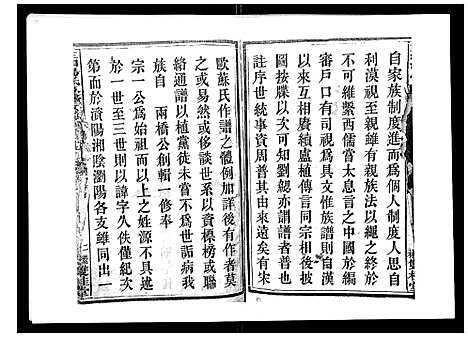 自家族制度進而爲個人制度人思自
利漠視至親雖有親族法以繩之終於
不可維繫西儒嘗太息言之中國
審戶口有司視爲具文惟族譜則自漢
以來互相賡續盧植傳言同宗相後於
宋而可知劉勰亦謂譜者
註序世統事資周普其由來遠矣有宋
歐蘇氏作譜之體例加詳後有作者莫
之或易然或侈談世系以資標榜或聯
絡通譜以植黨徒未嘗不爲世詬病我
族自 兩橋公創輯一修奉
宗一公爲始而以上之姓源不具述
於一世至三世則以諱字久佚僅紀次
第而於濱陽湘陰瀏陽各支雖同出一